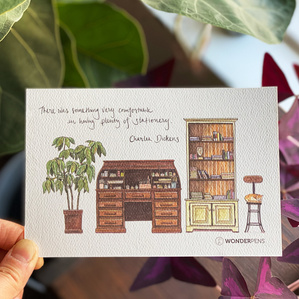 There was something very comfortable
in having plenty of stationery.
Charles Dickens
WONDERPENS